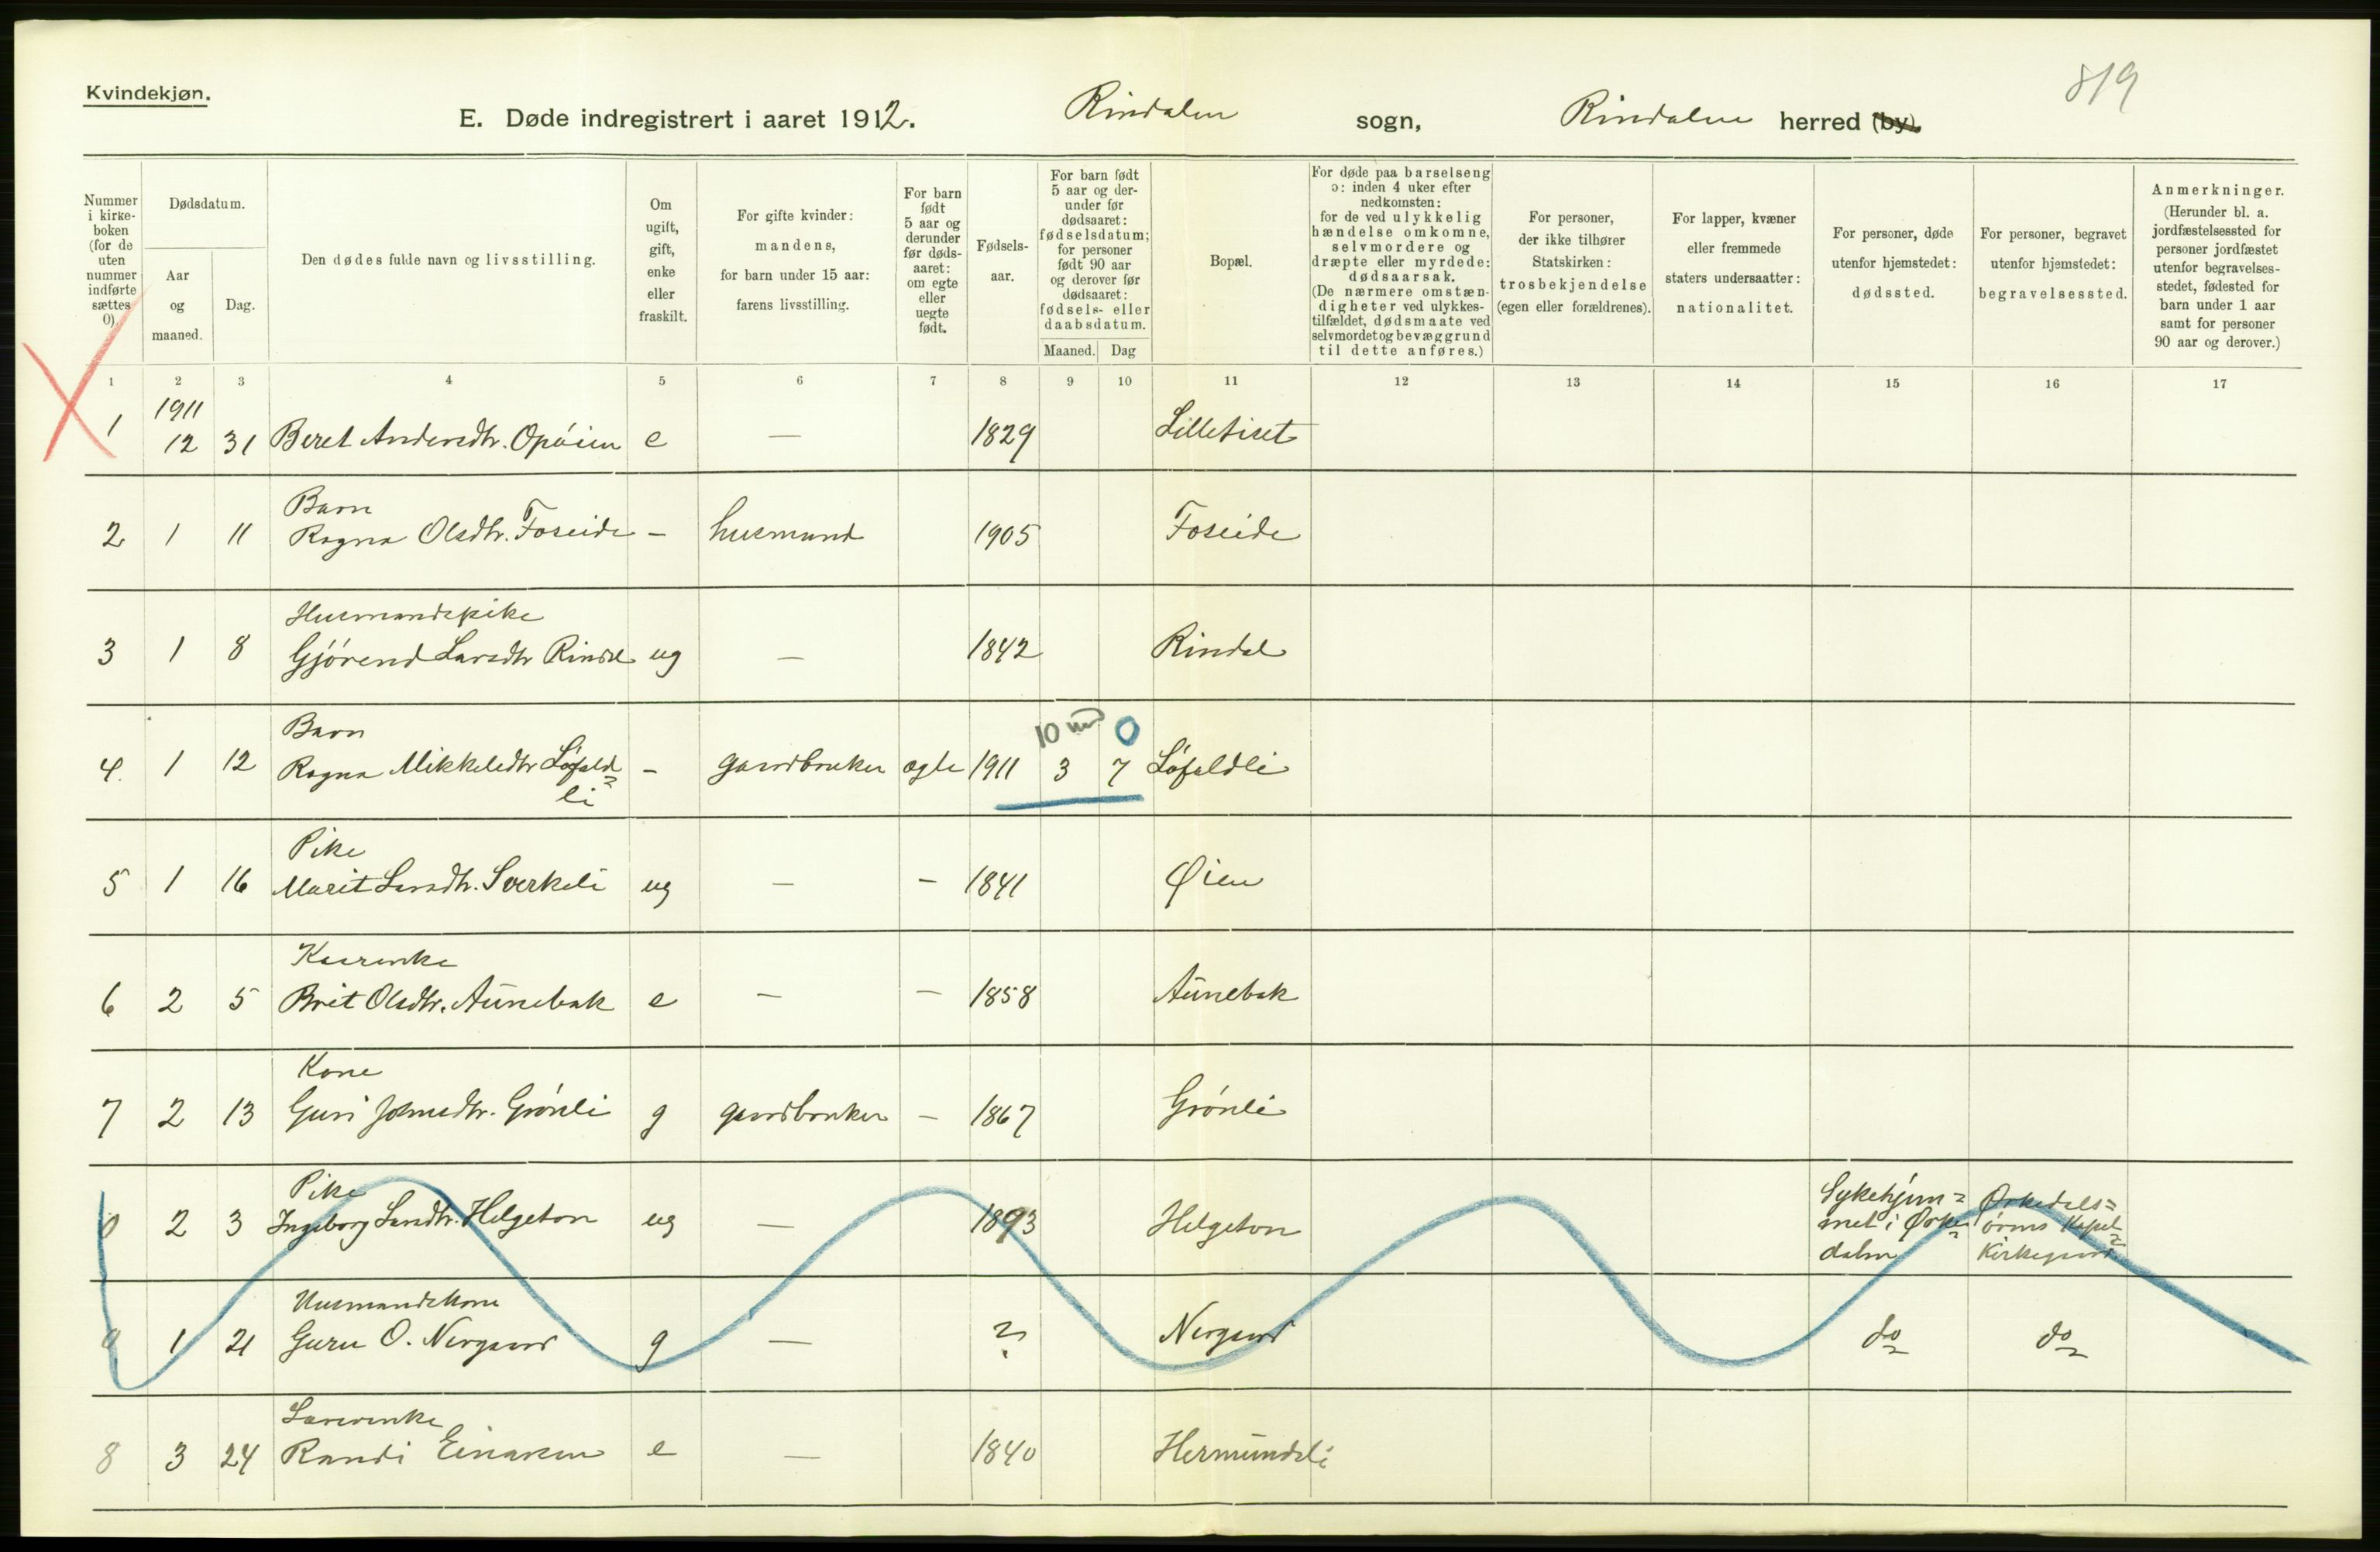 819
Kvindekjøn.
E. Døde indregistrert i aaret 1912. Rindalen sogn, Rindalen herred (by).
Nummer i kirkeboken (for de uten nummer indførte sættes 0).
Dødsdatum.
Aar og maaned.
Dag.
Den dødes fulde navn og livsstilling.
Om ugift, gift, enke eller fraskilt.
For gifte kvinder: mandens, for barn under 15 aar: farens livsstilling.
For barn født 5 aar og derunder før dødsaaret: om egte eller uegte født.
Fødselsaar.
For barn født 5 aar og derunder før dødsaaret: fødselsdatum; for personer født 90 aar og derover før dødsaaret: fødsels- eller daabsdatum.
Maaned. Dag
Bopæl.
For døde paa barselseng ɔ: inden 4 uker efter nedkomsten: for de ved ulykkelig hændelse omkomne, selvmordere og dræpte eller myrdede: dødsaarsak. (De nærmere omstændigheter ved ulykkestilfældet, dødsmaate ved selvmordet og bevæggrund til dette anføres.)
For personer, der ikke tilhører Statskirken: trosbekjendelse (egen eller forældrenes).
For lapper, kvæner eller fremmede staters undersaatter: nationalitet.
For personer, døde utenfor hjemstedet: dødssted.
For personer, begravet utenfor hjemstedet: begravelsessted.
Anmerkninger. (Herunder bl. a. jordfæstelsessted for personer jordfæstet utenfor begravelsesstedet, fødested for barn under 1 aar samt for personer 90 aar og derover.)
1 2 3 4 5 6 7 8 9 10 11 12 13 14 15 16 17
1911
1 12 31 Beret Andersdtr. Opøien e — 1829 Litletiset
Barn
2 1 11 Ragna Olsdtr. Foseide - husmand 1905 Foseide
Husmandspike
3 1 8 Gjørend Larsdtr Rindal ug — 1842 Rindal
Barn 10 md 0
4. 1 12 Ragna Mikkelsdtr Løfald= - gaardbruker ægte 1911 3 7 Løfaldli
li
Pike
5 1 16 Marit Larsdtr. Sverkeli ug — - 1841 Øien
Kaarenke
6 2 5 Brit Olsdtr. Aunebak e — — 1858 Aunebak
Kone
7 2 13 Guri Johnsdtr. Grønli g gaardbruker - 1867 Grønli
Pike
0 2 3 Ingeborg Larsdtr. Helgeton ug — 1893 Helgeton Sykehjem= met i Orke= dalen Orkedals= ørens Kapel= Kirkegaard
Husmandskone
0 1 21 Guru O. Nergaard g — ? Nergaard do do
8 3 24 Randi Einarsen e — 1840 Hermundsli